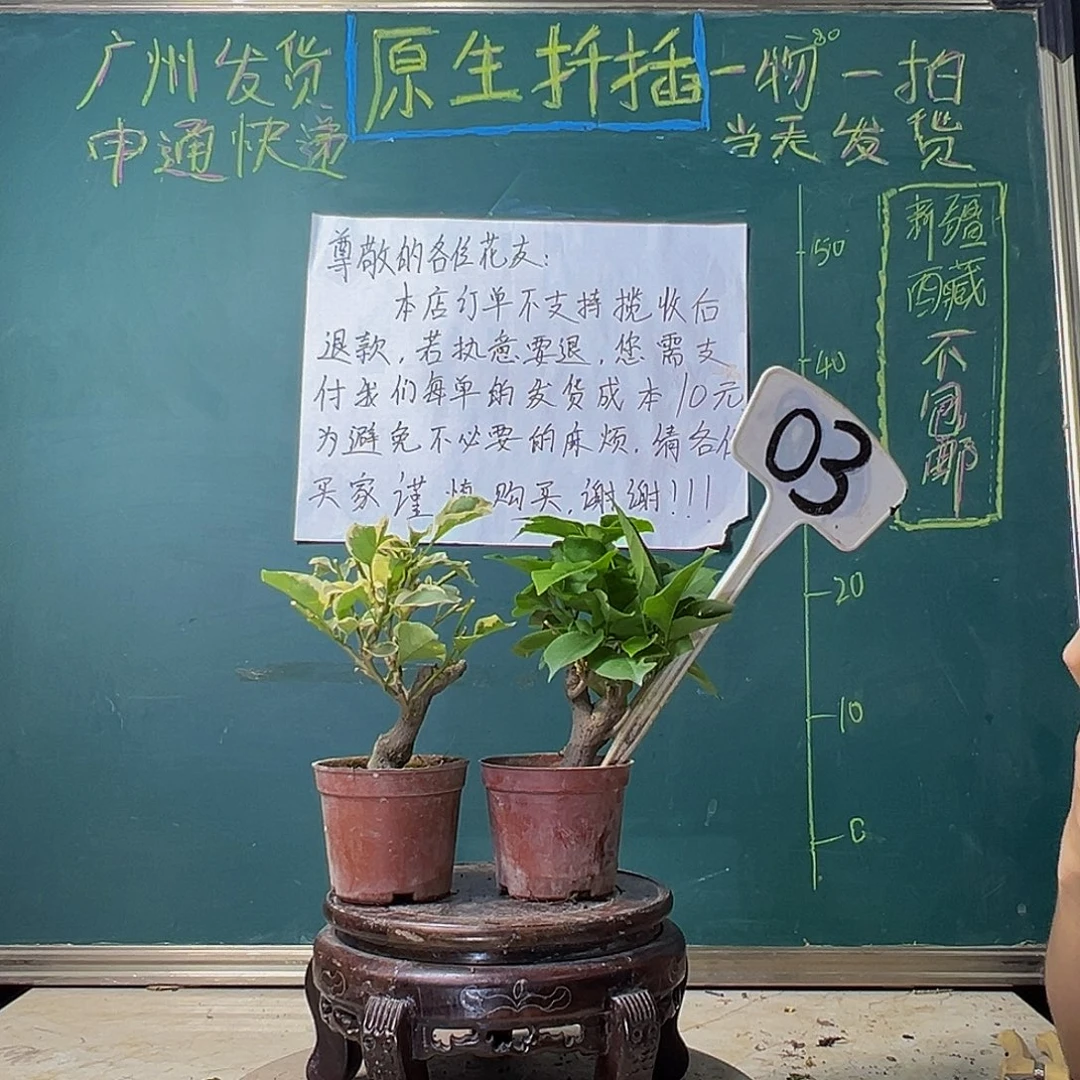 广州发货
申通快递
原生扦插
一物一拍
当天发货
尊敬的各位花友：
本店订单不支持揽收后
退款，若执意要退，您需支
付我们每单的发货成本10元
为避免不必要的麻烦，请各位
买家谨慎购买，谢谢！！！
新疆
西藏
不包邮
50
40
20
10
0
03